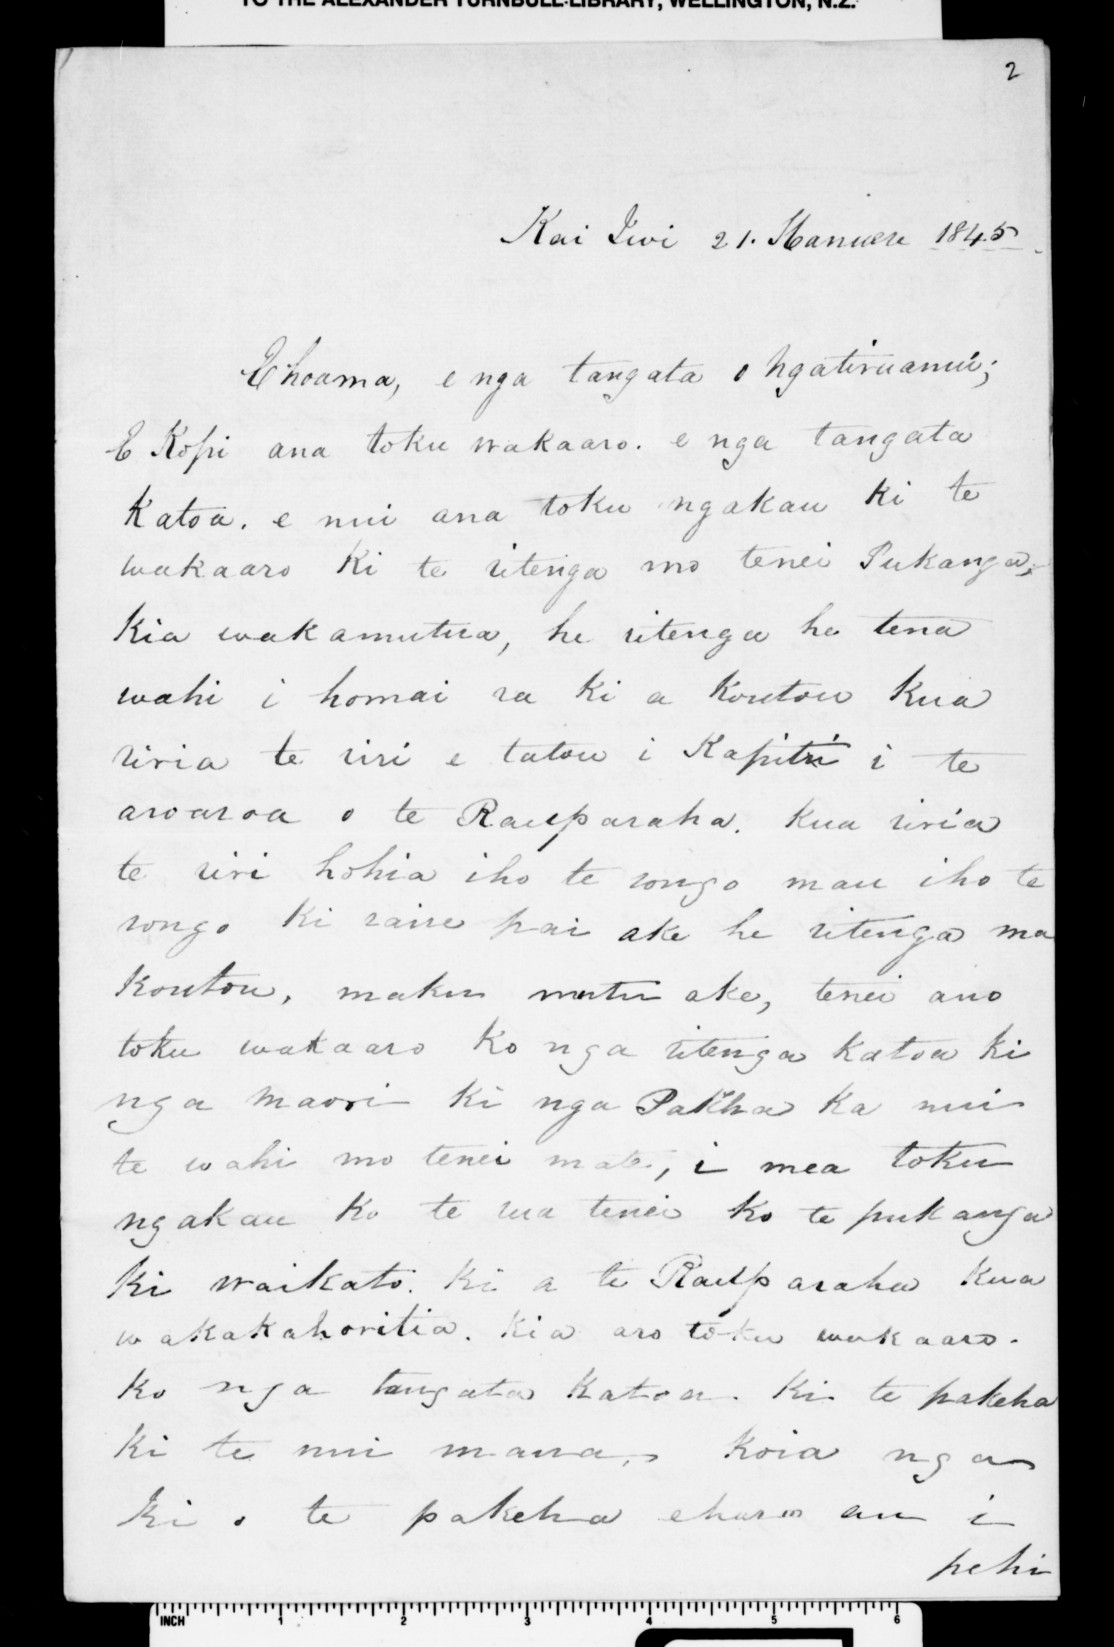 TO THE ALEXANDER TURNBULL LIBRARY, WELLINGTON, N.Z.
2
Kai Iwi 21. Hanuere 1845
E hoama, e nga tangata o Ngatiruanui;
E Kopi ana toku wakaaro. e nga tangata
Katoa. e nui ana toku ngakau ki te
wakaaro Ki te ritenga mo tenei Pukanga,
Kia wakamutua, he ritenga he tena
wahi i homai ra Ki a Koutou Kua
riria te riri e tatou i Kapiti i te
aroaroa o te Rauparaha. Kua riria
te riri hohia iho te rongo mau iho te
rongo Ki raire pai ake he ritenga ma
Koutou, maku mutu ake, tenei ano
toku wakaaro Ko nga ritenga Katoa ki
nga maori Ki nga Pakeha Ka nui
te wahi mo tenei mate, i mea toku
ngakau Ko te rua tenei Ko te pukanga
Ki Waikato. Ki a te Rauparaha Kua
wakakahoritia. Kia aro toku wakaaro.
Ko nga tangata Katoa. Ki te pakeha
Ki te nui mana, Koia nga
Ki o te pakeha ehara au i
pehi
INCH 1 2 3 4 5 6